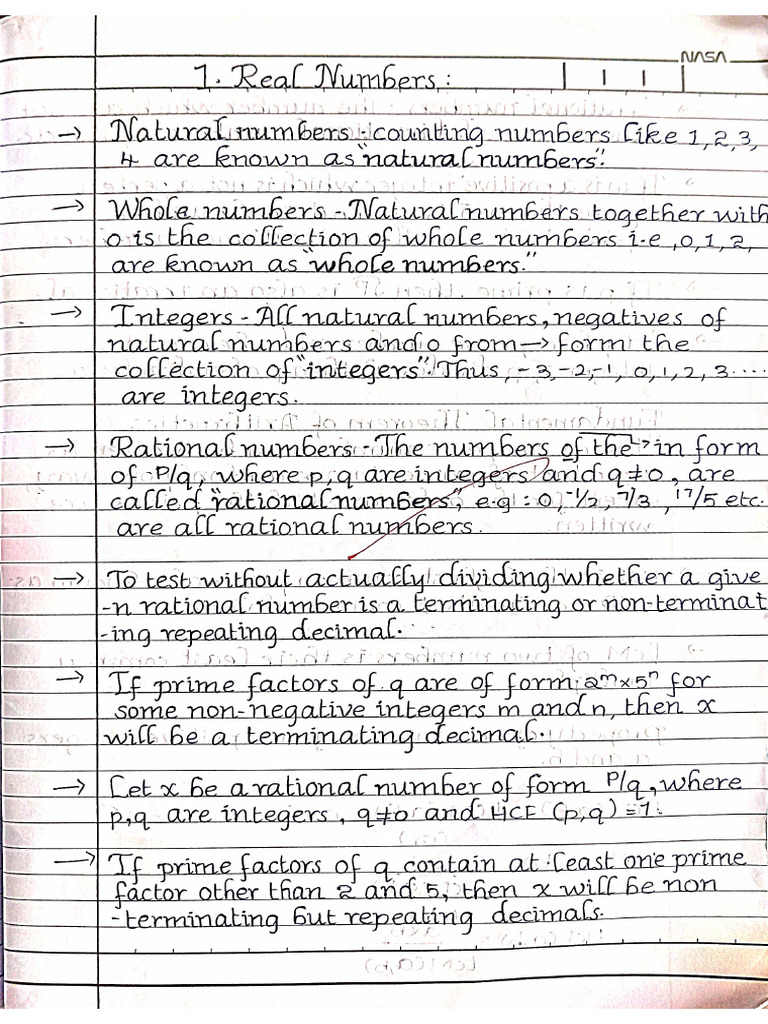 NASA
1. Real Numbers:
→ Natural numbers - counting numbers like 1, 2, 3,
4 are known as "natural numbers".
→ Whole numbers - Natural numbers together with
0 is the collection of whole numbers i.e, 0, 1, 2,
are known as "whole numbers."
→ Integers - All natural numbers, negatives of
natural numbers and 0 from → form the
collection of "integers". Thus, -3, -2, -1, 0, 1, 2, 3....
are integers.
→ Rational numbers - The numbers of the → in form
of P/q, where p, q are integers and q ≠ 0, are
called "rational numbers", e.g : 0, -1/2, 7/3, 17/5 etc.
are all rational numbers.
→ To test without actually dividing whether a give
-n rational number is a terminating or non-terminat
-ing repeating decimal.
→ If prime factors of q are of form 2ᵐ × 5ⁿ for
some non-negative integers m and n, then x
will be a terminating decimal.
→ Let x be a rational number of form P/q, where
p, q are integers, q ≠ 0 and HCF (p, q) = 1.
→ If prime factors of q contain at least one prime
factor other than 2 and 5, then x will be non
-terminating but repeating decimals.